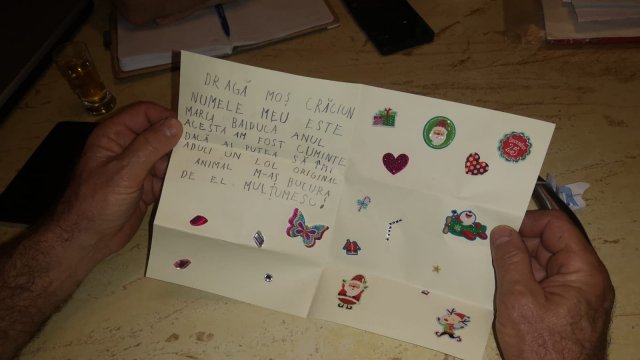 DRAGĂ MOȘ CRĂCIUN
NUMELE MEU ESTE
MARU BAIDULA ANUL
ACESTA AM FOST CUMINTE
DACĂ AI PUTEA SĂ ÎMI
ADUCI UN LOL ORIGINAL
ANIMAL M-AȘ BUCURA
DE EL. MULȚUMESC!